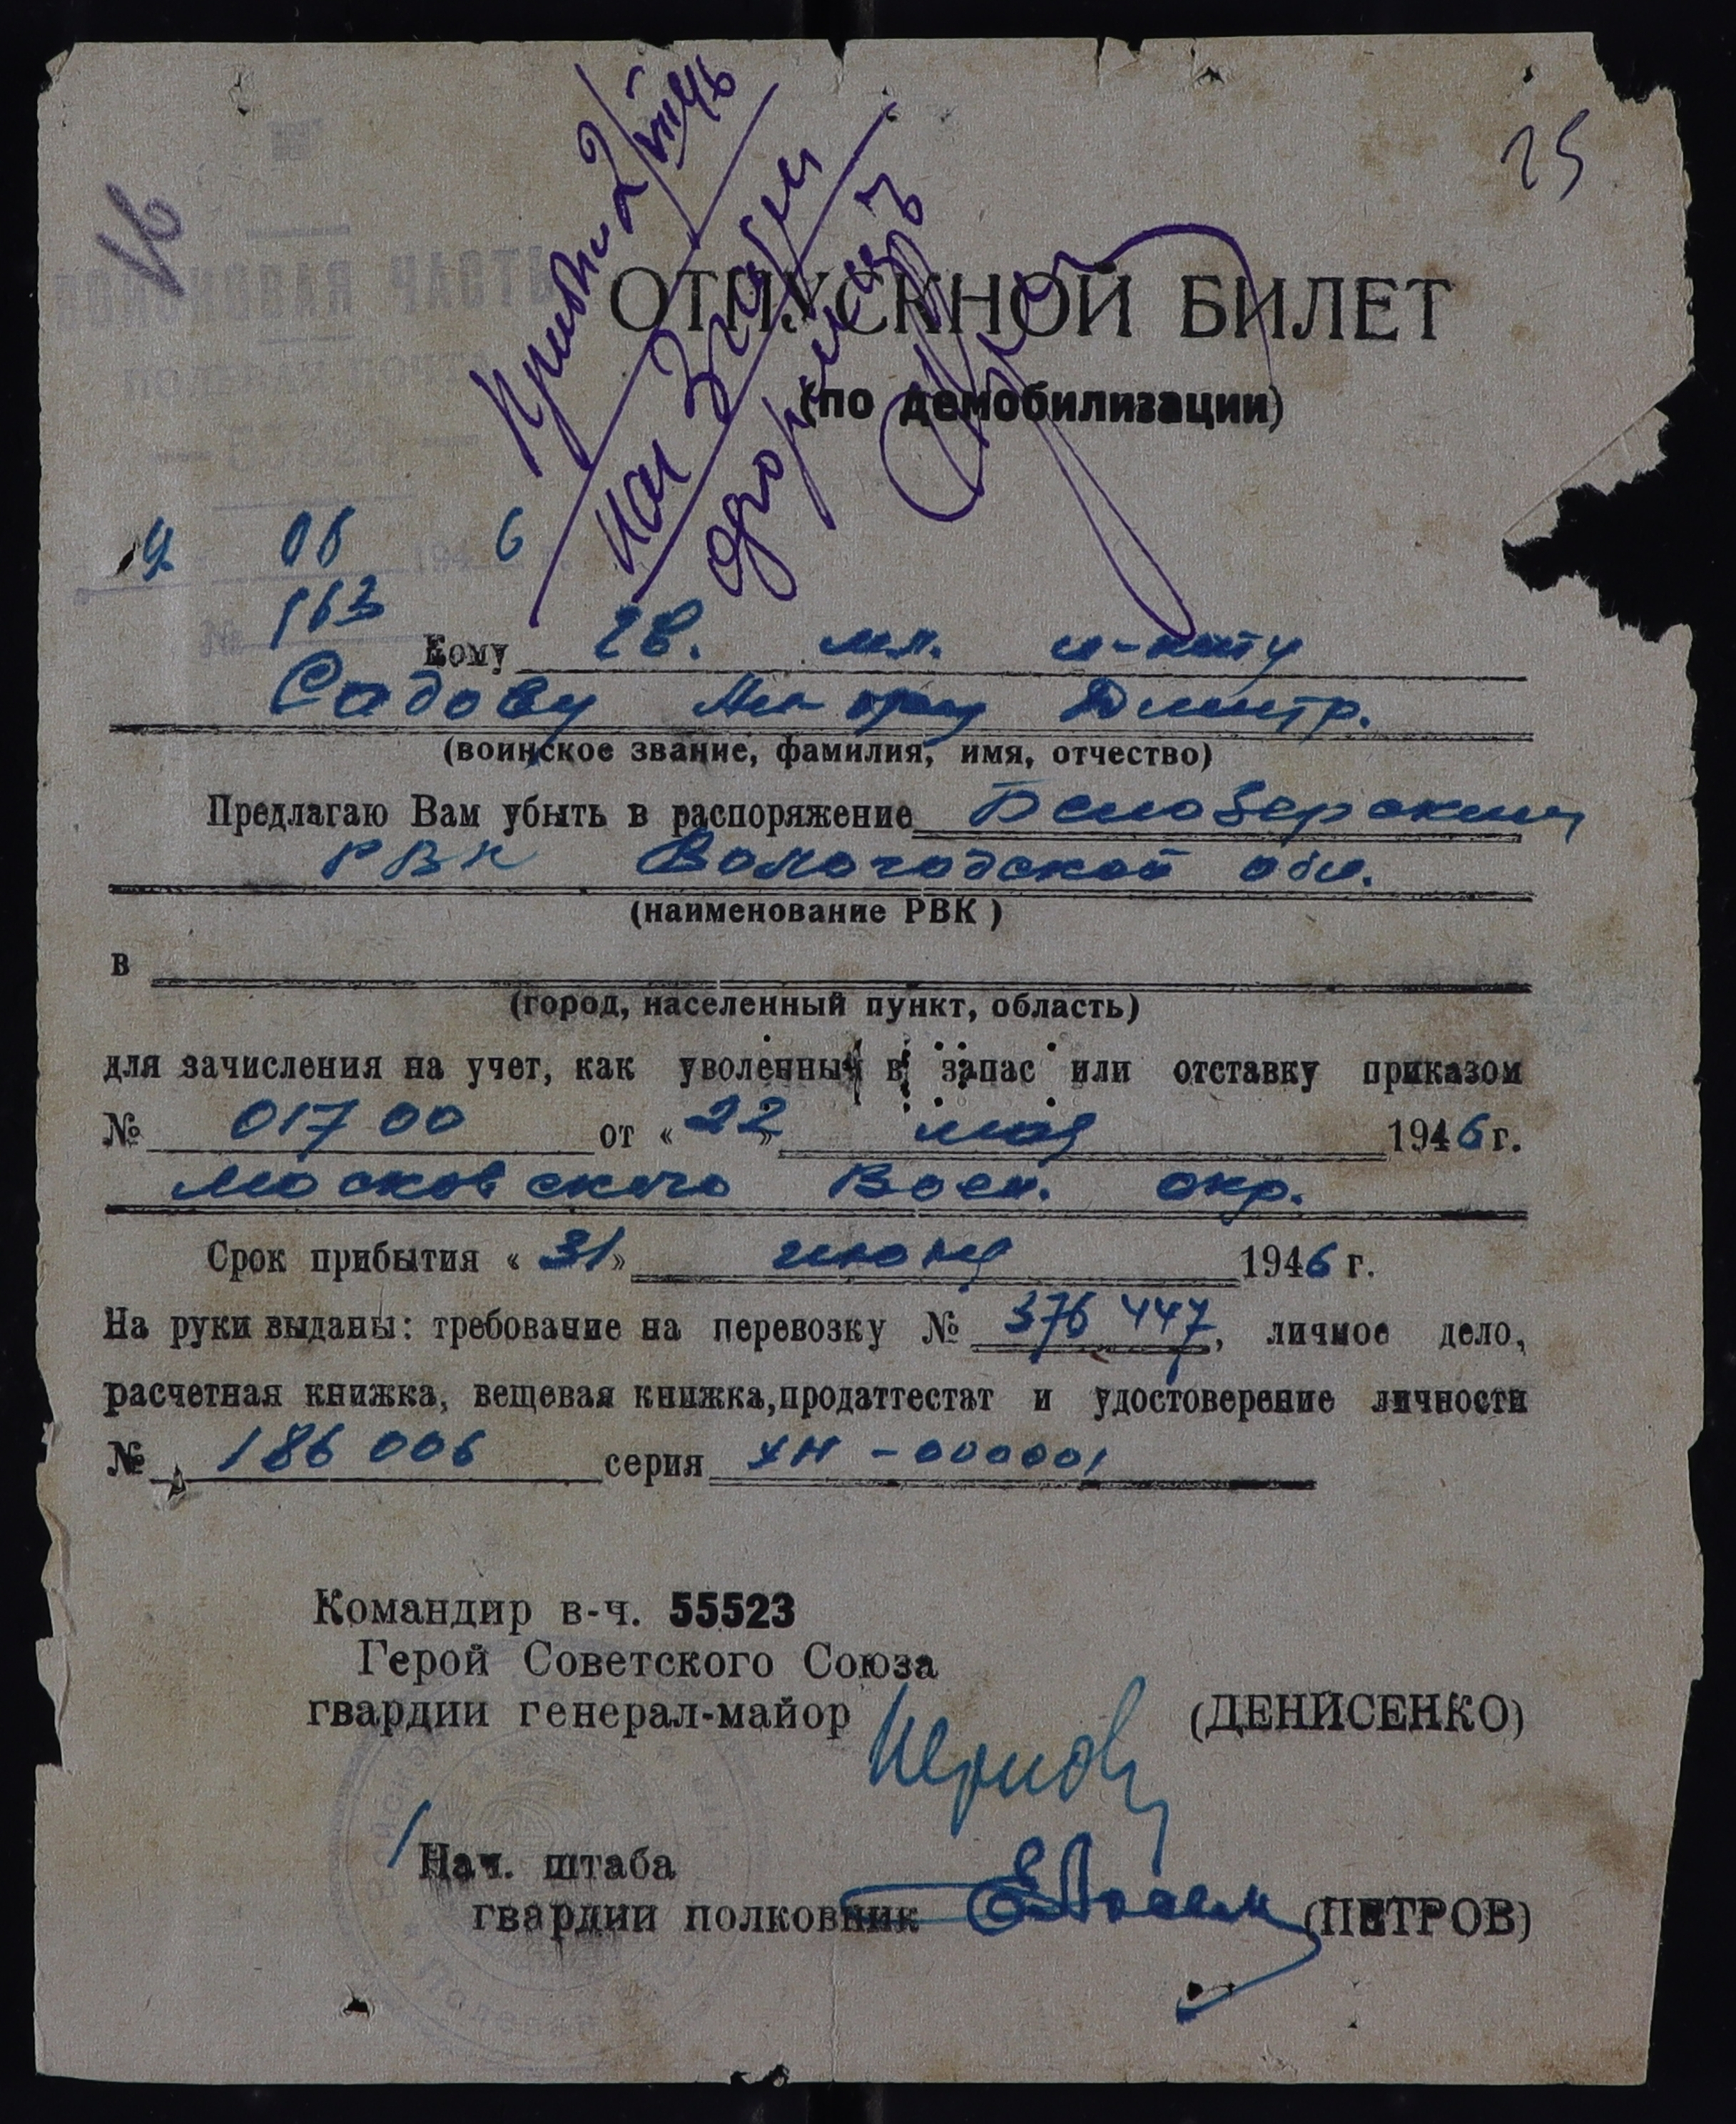 25
16
ОТПУСКНОЙ БИЛЕТ
(по демобилизации)
06 6
163
Кому гв. мл. л-нту
Садову Дмитр.
(воинское звание, фамилия, имя, отчество)
Предлагаю Вам убыть в распоряжение Белозерским
РВК Вологодской обл.
(наименование РВК)
в
(город, населенный пункт, область)
для зачисления на учет, как уволенный в запас или отставку приказом
№ 01700 от «22» мая 1946 г.
Московского Воен. окр.
Срок прибытия «31» 1946 г.
На руки выданы: требование на перевозку № 376 447, личное дело,
расчетная книжка, вещевая книжка, продаттестат и удостоверение личности
№ 186 006 серия -000001
Командир в-ч. 55523
Герой Советского Союза
гвардии генерал-майор (ДЕНИСЕНКО)
Нач. штаба
гвардии полковник (ПЕТРОВ)